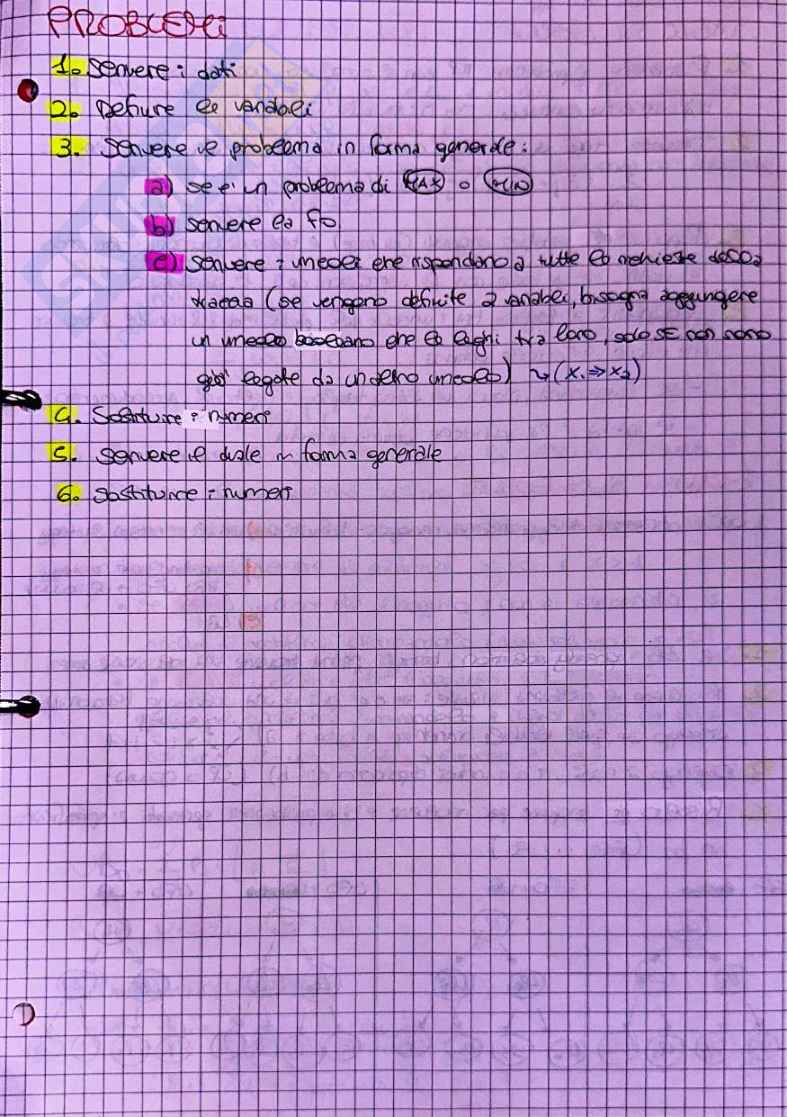 PROBLEMi
1. scrivere i dati
2. Definire le variabili
3. scrivere il problema in forma generale:
a) se e' un problema di MAX o MIN
b) scrivere la fo
c) scrivere i vincoli che rispondano a tutte le richieste della
traccia (se vengono definite 2 variabili, bisogna aggungere
un vincolo booleano che le leghi tra loro, solo SE non sono
gia' legate da un altro vincolo) ↪ (x₁ ⇒ x₂)
4. Sostituire i numeri
5. scrivere il duale in forma generale
6. sostituire i numeri